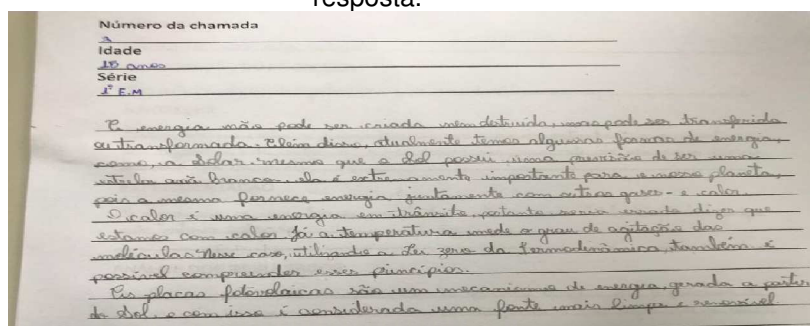 resposta.
Número da chamada
3
Idade
15 anos
Série
1º E.M
A energia não pode ser criada nem destruída, mas pode ser transferida
ou transformada. Além disso, atualmente temos algumas formas de energia,
como, a solar, mesmo que o Sol possui uma previsão de ser uma
estrela anã branca, ela é extremamente importante para o nosso planeta,
pois a mesma fornece energia juntamente com outros gases - e calor.
O calor é uma energia em trânsito, portanto seria errado dizer que
estamos com calor. Já a temperatura mede o grau de agitação das
moléculas. Nesse caso, utilizando a Lei zero da Termodinâmica, também é
possível compreender esses princípios.
As placas fotovolaicas são um mecanismo de energia, gerada a partir
do Sol, e com isso é considerada uma fonte mais limpa e renovável